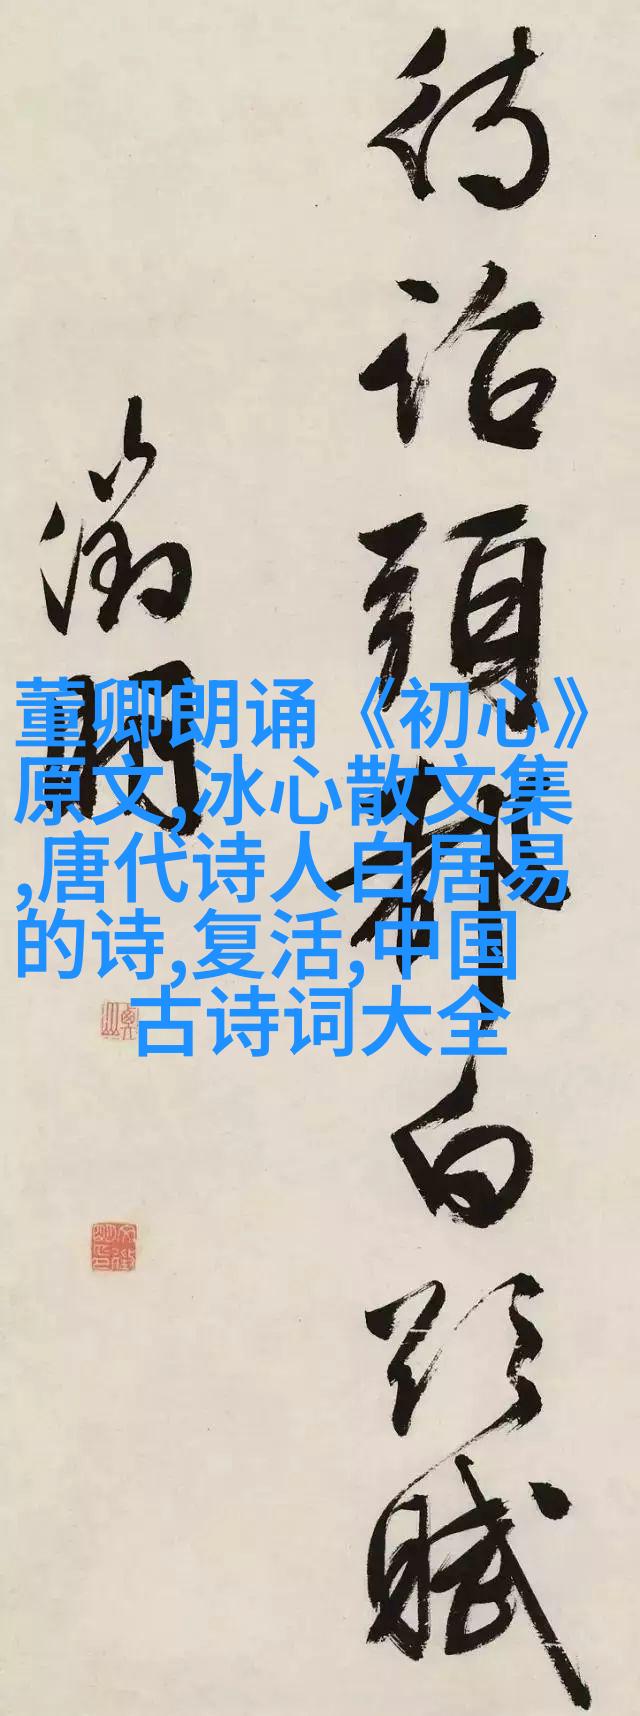 待诏頭都白可欺賦
徵明
董卿朗诵《初心》
原文,冰心散文集
,唐代诗人白居易
的诗,复活,中国
古诗词大全